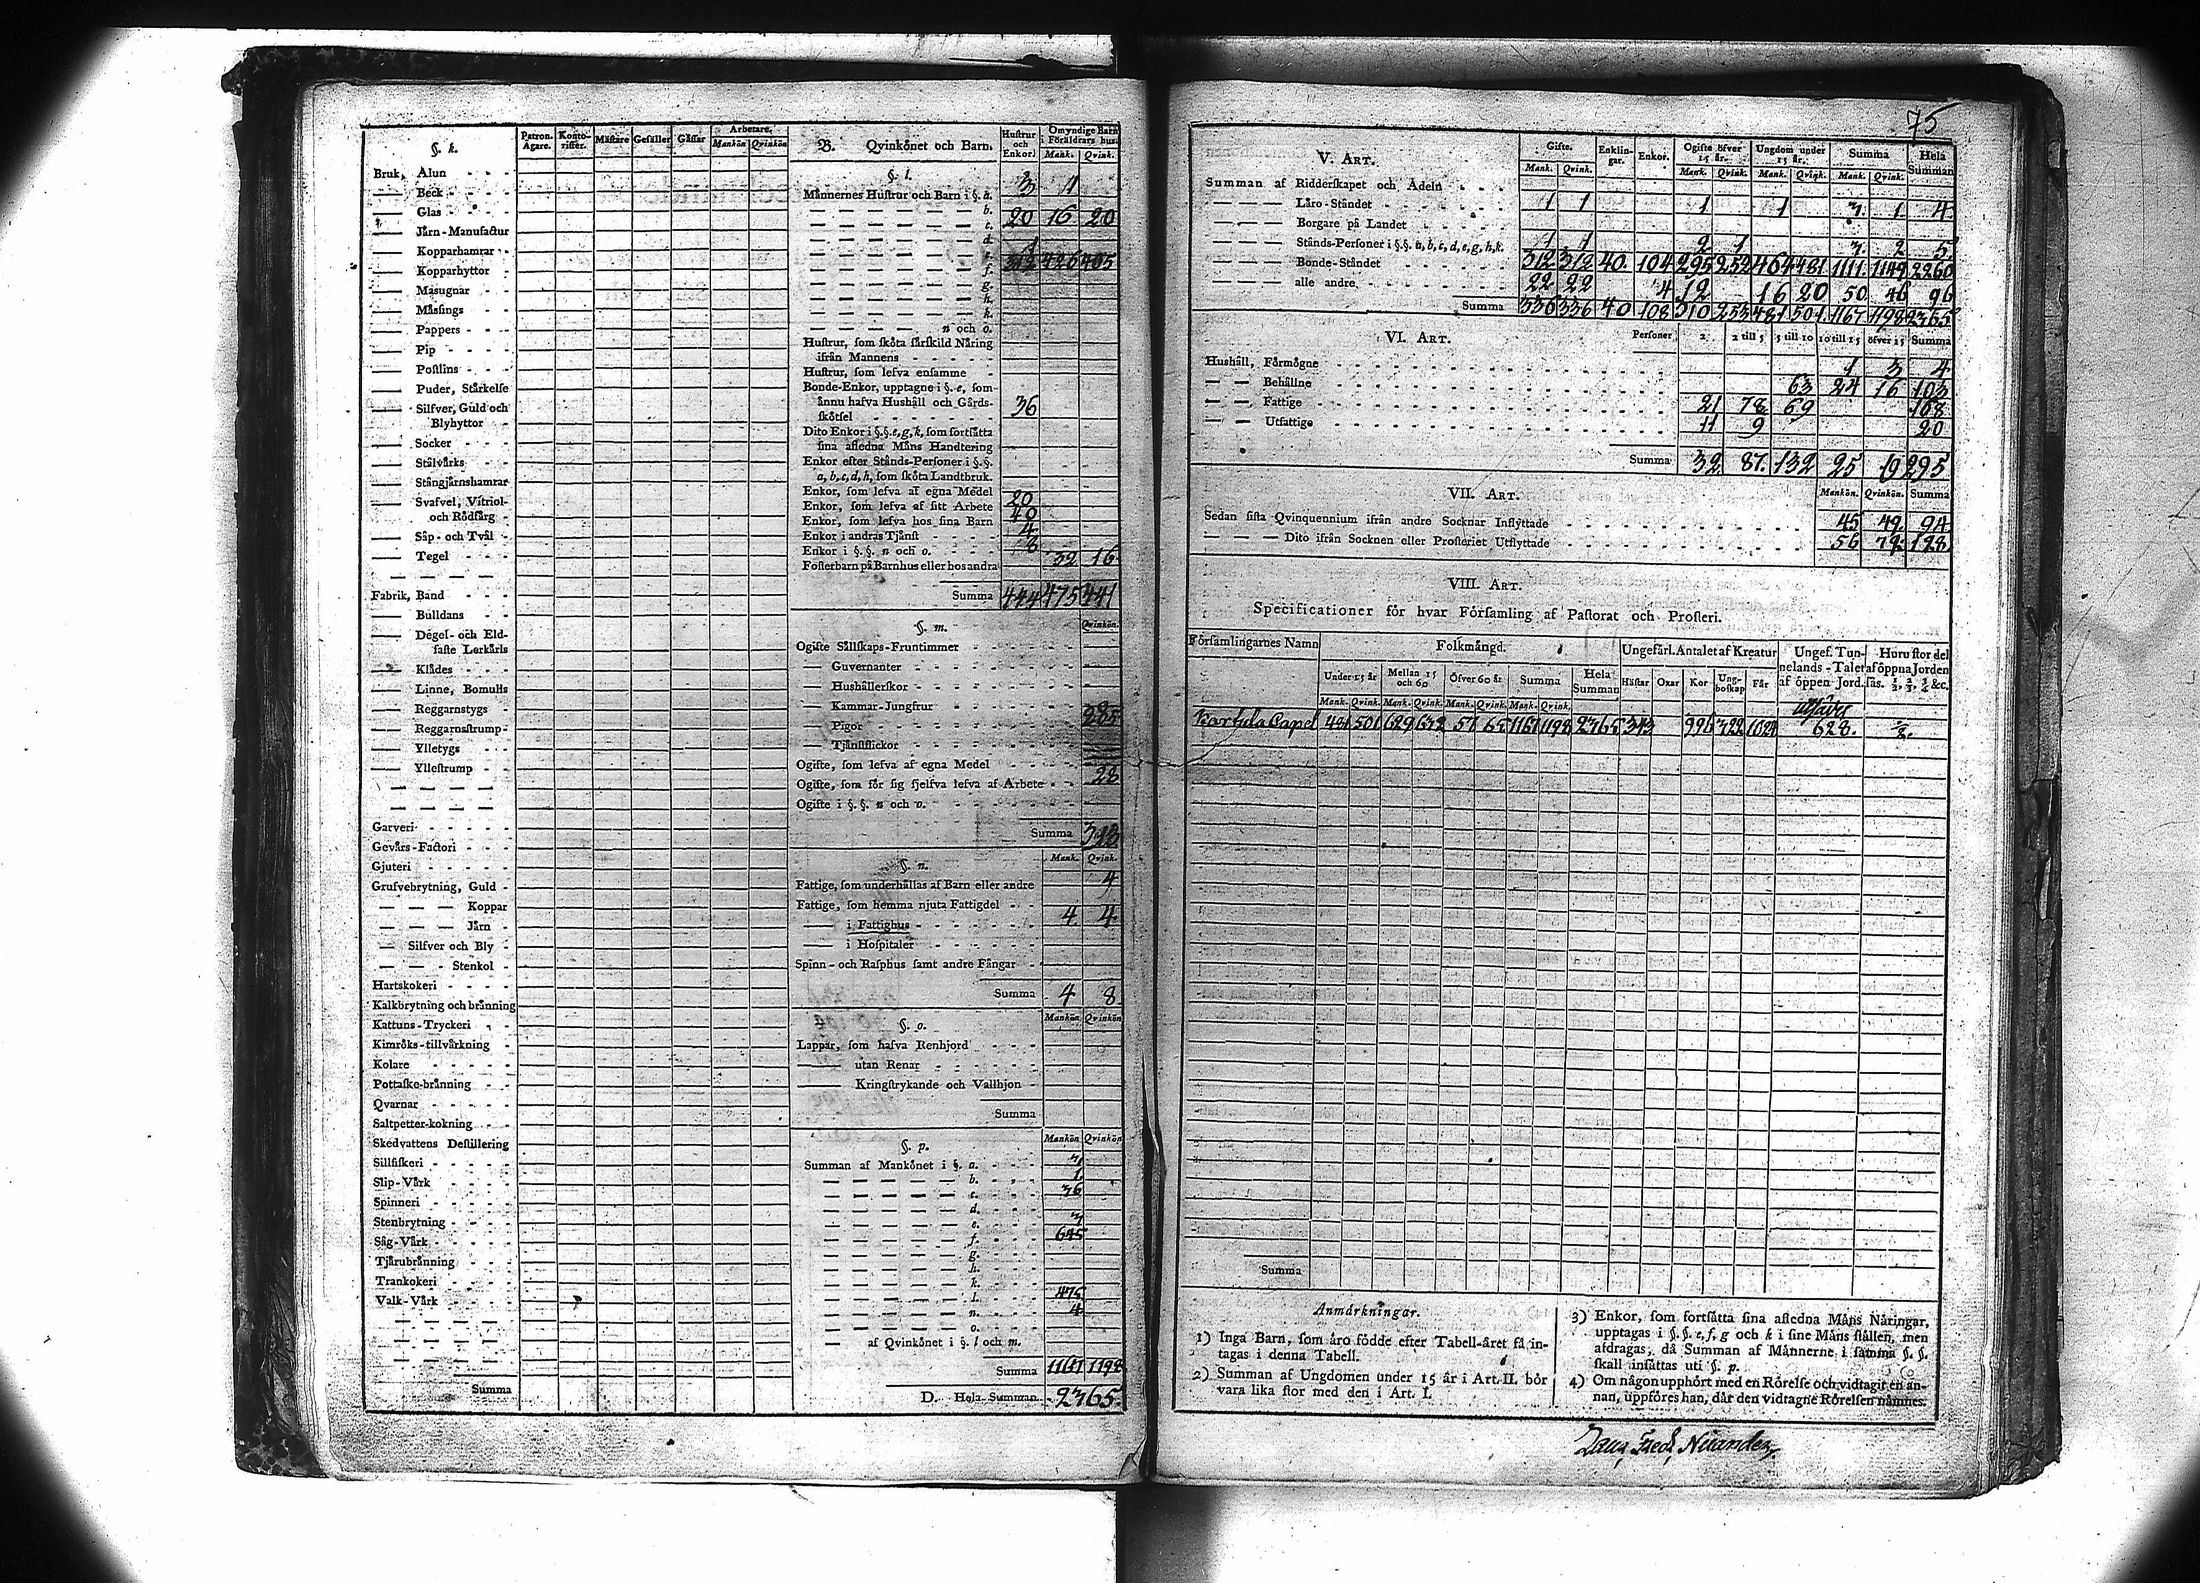 75
§. k.
Patron. Ägare.
Konto-rister.
Mästare
Gesäller
Gåssar
Arbetare.
Mankön Qvinkön
Bruk, Alun
— Beck
— Glas
— Järn-Manufactur
— Kopparhamrar
— Kopparhyttor
— Masugnar
— Måssings
— Pappers
— Pip
— Postlins
— Puder, Stärkelse
— Silfver, Guld och
Blyhyttor
— Socker
— Stålvärks
— Stångjärnshamrar
— Svafvel, Vitriol-
och Rödfärg
— Såp- och Tvål
— Tegel
Fabrik, Band
— Bulldans
— Degel- och Eld-
faste Lerkärls
— Klädes
— Linne, Bomulls
— Reggarnstygs
— Reggarnsstrump
— Ylletygs
— Yllestrump
Garveri
Gevärs-Factori
Gjuteri
Grufvebrytning, Guld
— — — Koppar
— — — Järn
— Silfver och Bly
— — Stenkol
Hartskokeri
Kalkbrytning och bränning
Kattuns-Tryckeri
Kimröks-tillvärkning
Kolare
Pottaske-bränning
Qvarnar
Saltpetter-kokning
Skedvattens Destillering
Sillfiskeri
Slip-Värk
Spinneri
Stenbrytning
Såg-Värk
Tjärubränning
Trankokeri
Valk-Värk
Summa
B. Qvinkönet och Barn.
Hustrur och Enkor.
Omyndige Barn i Föräldrars hus.
Mank. Qvink.
§. l.
Männernes Hustrur och Barn i §. a. 3 1
— — — — — b.
— — — — — c. 20 16 20
— — — — — d.
— — — — — e. 1
— — — — — f. 312 426 405
— — — — — g.
— — — — — h.
— — — — — k.
— — — — n och o.
Hustrur, som sköta särskild Näring
ifrån Mannens
Hustrur, som lefva ensamme
Bonde-Enkor, upptagne i §. e, som
ännu hafva Hushåll och Gårds-
skötsel 36
Dito Enkor i §.§. e, g, k, som fortsätta
sina afledna Mäns Handtering
Enkor efter Stånds-Personer i §.§.
a, b, c, d, h, som sköta Landtbruk.
Enkor, som lefva af egna Medel
Enkor, som lefva af sitt Arbete 20
Enkor, som lefva hos sina Barn 40
Enkor i andras Tjänst 4
Enkor i §.§. n och o. 8
Fosterbarn på Barnhus eller hos andra 32 16
Summa 444 475 441
§. m. Qvinkön.
Ogifte Sällskaps-Fruntimmer
— Guvernanter
— Hushållerskor
— Kammar-Jungfrur
— Pigor 285
— Tjänstflickor
Ogifte, som lefva af egna Medel
Ogifte, som för sig sjelfva lefva af Arbete 28
Ogifte i §.§. n och o.
Summa 313
§. n. Mank. Qvink.
Fattige, som underhållas af Barn eller andre 4
Fattige, som hemma njuta Fattigdel 4 4
— i Fattighus
— i Hospitaler
Spinn- och Rasphus samt andre Fångar
Summa 4 8
§. o. Mankön Qvinkön
Lappar, som hafva Renhjord
— utan Renar
Kringstrykande och Vallhjon
Summa
§. p. Mankön Qvinkön
Summan af Mankönet i §. a. 3
— — — — — b. 1
— — — — — c. 36
— — — — — d.
— — — — — e. 3
— — — — — f. 645
— — — — — g.
— — — — — h.
— — — — — k.
— — — — — l. 475
— — — — — n. 4
— — — — — o.
af Qvinkönet i §. l och m.
Summa 1167 1198
D. Hela Summan 2365
V. ART.
Gifte. Mank. Qvink.
Enklin-gar.
Enkor.
Ogifte öfver 15 år. Mank. Qvink.
Ungdom under 15 år. Mank. Qvink.
Summa Mank. Qvink.
Hela Summan
Summan af Ridderskapet och Adeln
— — — Läro-Ståndet 1 1 1 1 3 1 4
— — — Borgare på Landet
— — — Stånds-Personer i §.§. a, b, c, d, e, g, h, k. 1 1 2 1 3 2 5
— — — Bonde-Ståndet 312 312 40 104 295 252 464 481 1111 1149 2260
— — — alle andre 22 22 4 12 16 20 50 46 96
Summa 336 336 40 108 310 253 481 501 1167 1198 2365
VI. ART. Personer 2 2 till 5 5 till 10 10 till 15 öfver 15 Summa
Hushåll, Förmögne 1 3 4
— — Behållne 63 24 16 103
— — Fattige 21 78 69 168
— — Utfattige 11 9 20
Summa 32 87 132 25 19 295
VII. ART. Mankön. Qvinkön. Summa
Sedan sista Qvinquennium ifrån andre Socknar Inflyttade 45 49 94
— — — Dito ifrån Socknen eller Prosteriet Utflyttade 56 72 128
VIII. ART.
Specificationer för hvar Församling af Pastorat och Prosteri.
Församlingarnes Namn
Folkmängd.
Under 15 år
Mellan 15 och 60
Öfver 60 år
Summa
Hela Summan
Mank. Qvink. Mank. Qvink. Mank. Qvink. Mank. Qvink.
Ungefärl. Antalet af Kreatur
Hästar Oxar Kor Ung-boskap Får
Ungef. Tun-nelands-Talet af öppen Jord.
Huru stor del af öppna Jorden sås. 1/2, 1/3, 1/4 &c.
utsäde
Karstula Capel 481 501 629 632 57 65 1167 1198 2365 343 996 322 1024 628. 1/2.
Summa
Anmärkningar.
1) Inga Barn, som äro födde efter Tabell-året få in-
tagas i denna Tabell.
2) Summan af Ungdomen under 15 år i Art. II. bör
vara lika stor med den i Art. I.
3) Enkor, som fortsätta sina afledna Mäns Näringar,
upptagas i §.§. e, f, g och k i sine Mäns ställen, men
afdragas, då Summan af Männerne i samma §.§.
skall insättas uti §. p.
4) Om någon upphört med en Rörelse och vidtagit en an-
nan, uppföres han, där den vidtagne Rörelsen nämnes.